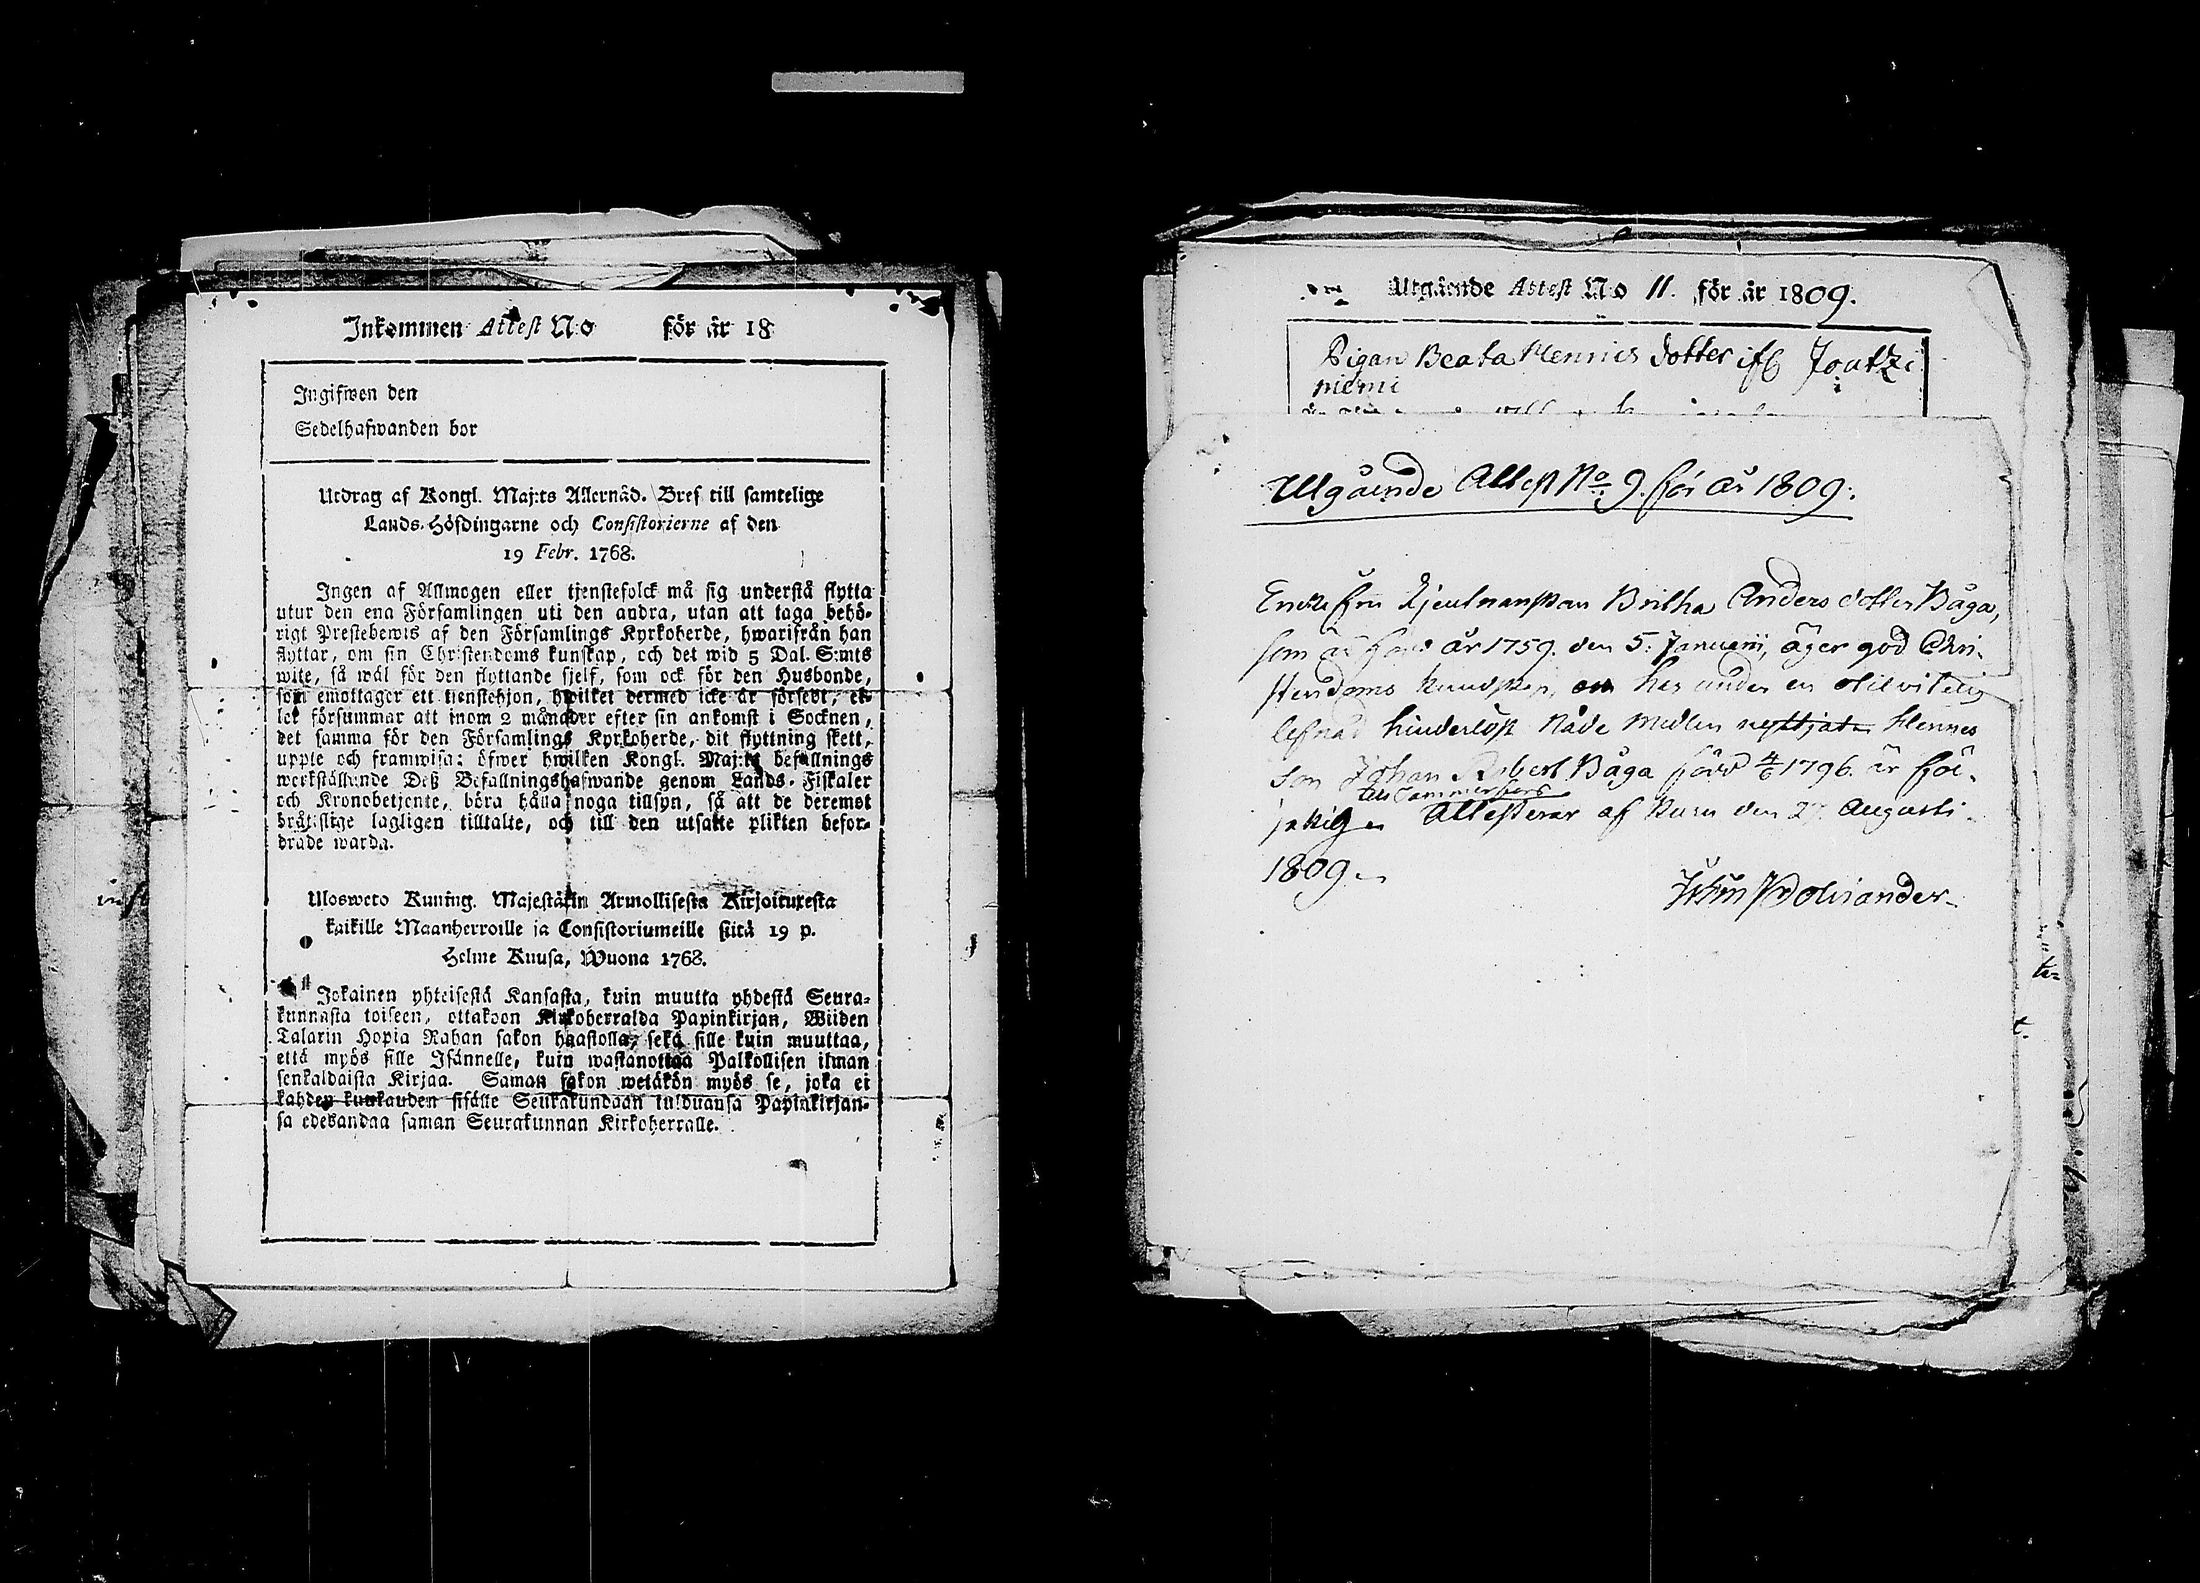 Inkommen Attest N:o för år 18
Ingifwen den
Sedelhafwanden bor
Utdrag af Kongl. Maj:ts Allernåd. Bref till samtelige
Lands-Höfdingarne och Consistorierne af den
19 Febr. 1768.
Ingen af Allmogen eller tjenstefolck må sig understå flytta
utur den ena Församlingen uti den andra, utan att taga behö-
rigt Prestebewis af den Församlings Kyrkoherde, hwarifrån han
flyttar, om sin Christendoms kunskap, och det wid 5 Dal. S:mts
wite, så wäl för den flyttande sjelf, som ock för den Husbonde,
som emottager ett tienstehjon, hwilket dermed icke är försedt, el-
ler försummar att inom 2 månader efter sin ankomst i Socknen,
det samma för den Församlings Kyrkoherde, dit flyttning skett,
uppte och framwisa: öfwer hwilken Kongl. Maj:ts befallnings
werkställande Deß Befallningshafwande genom Lands-Fiskaler
och Kronobetjente, böra hålla noga tillsyn, så att de deremot
bråtslige lagligen tilltalte, och till den utsatte plikten befor-
drade warda.
Ulosweto Kuning. Majestätin Armollisesta Kirjoituxesta
kaikille Maanherroille ja Consistoriumeille siitä 19 p.
Helme Kuusa, Wuona 1768.
Jokainen yhteisestä Kansasta, kuin muutta yhdestä Seura-
kunnasta toiseen, ottakoon Kirkoherralda Papinkirjan, Wiiden
Talarin Hopia Rahan sakon haastolla, sekä sille kuin muuttaa,
että myös sille Isännelle, kuin wastanottaa Palkollisen ilman
senkaldaista Kirjaa. Saman sakon wetäkön myös se, joka ei
kahden kuukauden sisälle Seurakundaan tulduansa Papinkirjan-
sa edesandaa saman Seurakunnan Kirkoherralle.
Utgående Attest N:o 11. för år 1809.
Pigan Beata Henrics dotter ifr Joutzi
niemi
Utgående Attest No 9. för år 1809.
Enke fru Ljeutnanskan Britha Anders dotter Båga,
som är född år 1759. den 5. Januarii, äger god Chri-
stendoms kundskap, har under en
lefnad hinderlöst Nåde Medlen nyttjat. Hennes
Son Johan Robert Båga född 4/6 1796. är för-
till Tammerfors
Attesterar af Kuru den 27. Augusti
1809.